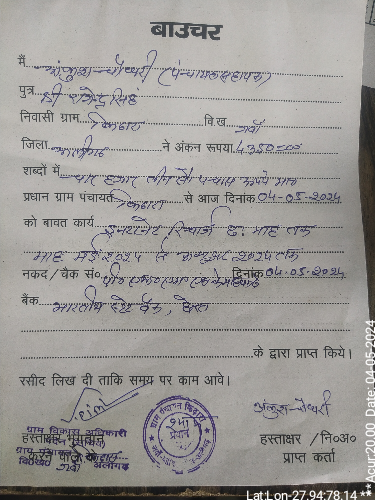 बाउचर
मैं अंकुश चौधरी (पंचायत सहायक)
पुत्र श्री राजेन्द्र सिंह
निवासी ग्राम वि.ख. गवाँ
जिला अलीगढ ने अंकन रूपया 4350=00
शब्दों में चार हजार तीन सौ पचास रूपये मात्र
प्रधान ग्राम पंचायत से आज दिनांक 04-05-2024
को बावत कार्य इन्टरनेट रिचार्ज 6 माह तक
माह मई 2024 से अक्टूबर 2024 तक
नकद / चैक सं० दिनांक 04-05-2024
बैंक भारतीय स्टेट बैंक,
के द्वारा प्राप्त किये।
रसीद लिख दी ताकि समय पर काम आवे।
अंकुश चौधरी
ग्राम विकास अधिकारी
हस्ताक्षर भुगतान
करने वाले के
अलीगढ़
हस्ताक्षर / नि०अ०
प्राप्त कर्ता
प्रधान
Lat Lon-27.94:78.14
**Acur:20.00 Date: 04-05-2024**